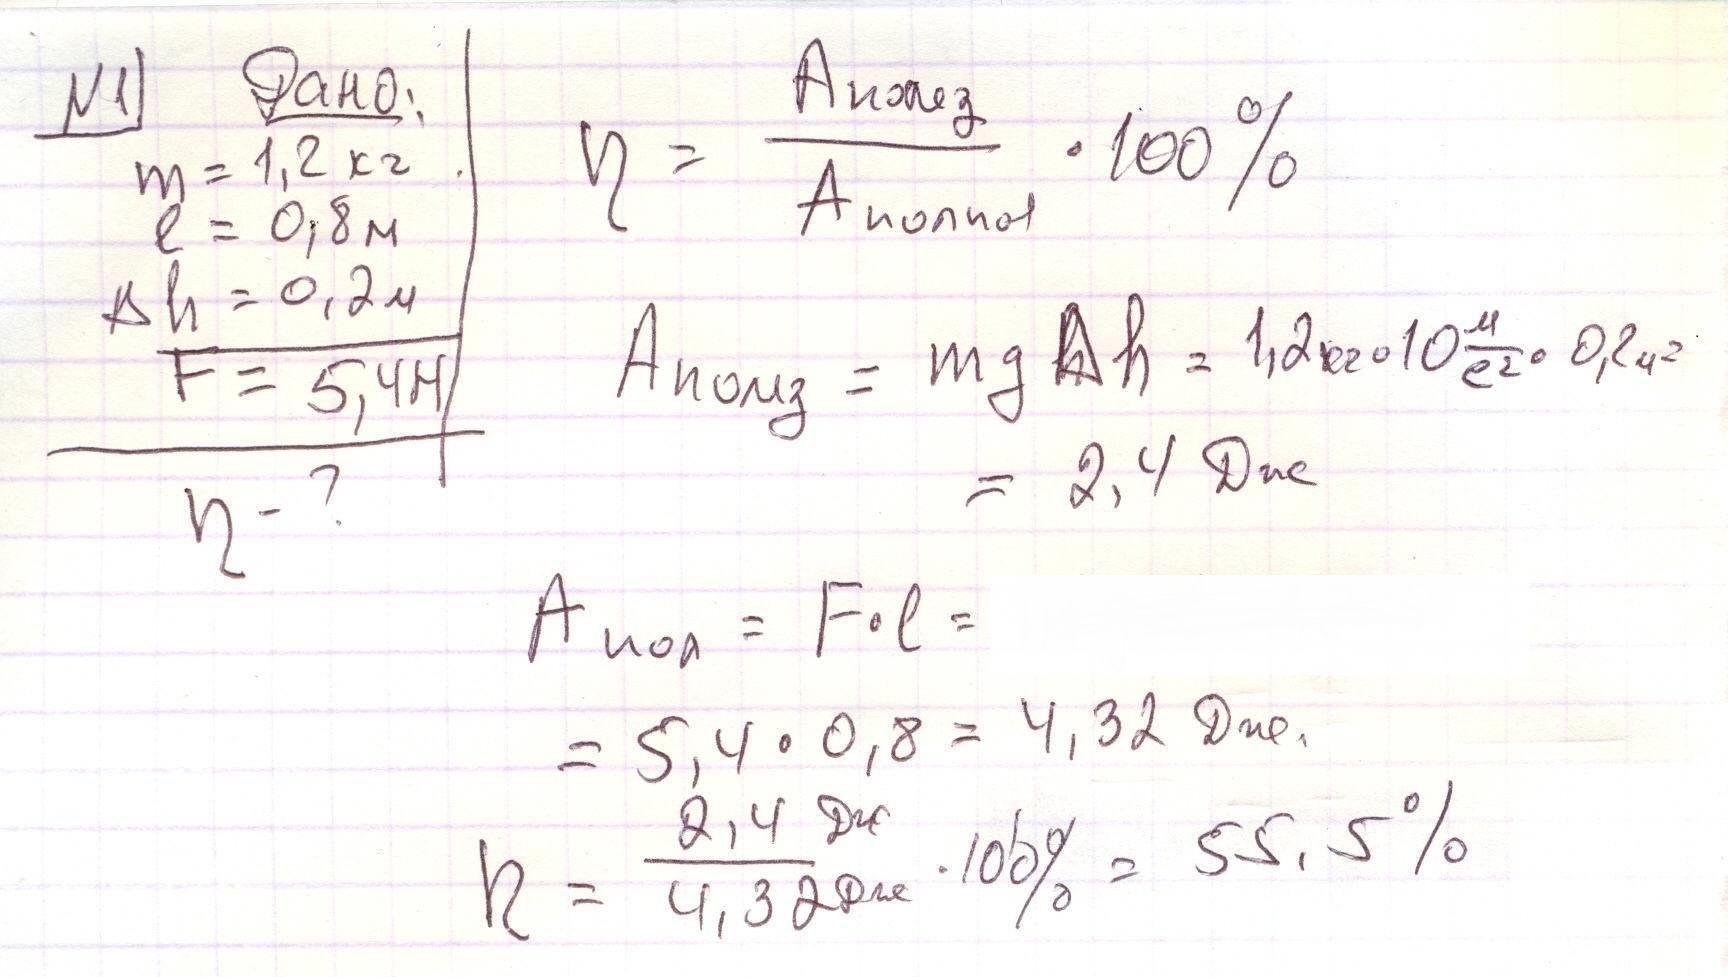 №1 Дано:
m = 1,2 кг
l = 0,8 м
Δh = 0,2 м
F = 5,4 Н
η - ?
η = Aполез / Aполная · 100%
Aполез = mgΔh = 1,2 кг · 10 м/с² · 0,2 м =
= 2,4 Дж
Aпол = F·l =
= 5,4 · 0,8 = 4,32 Дж.
η = 2,4 Дж / 4,32 Дж · 100% = 55,5%